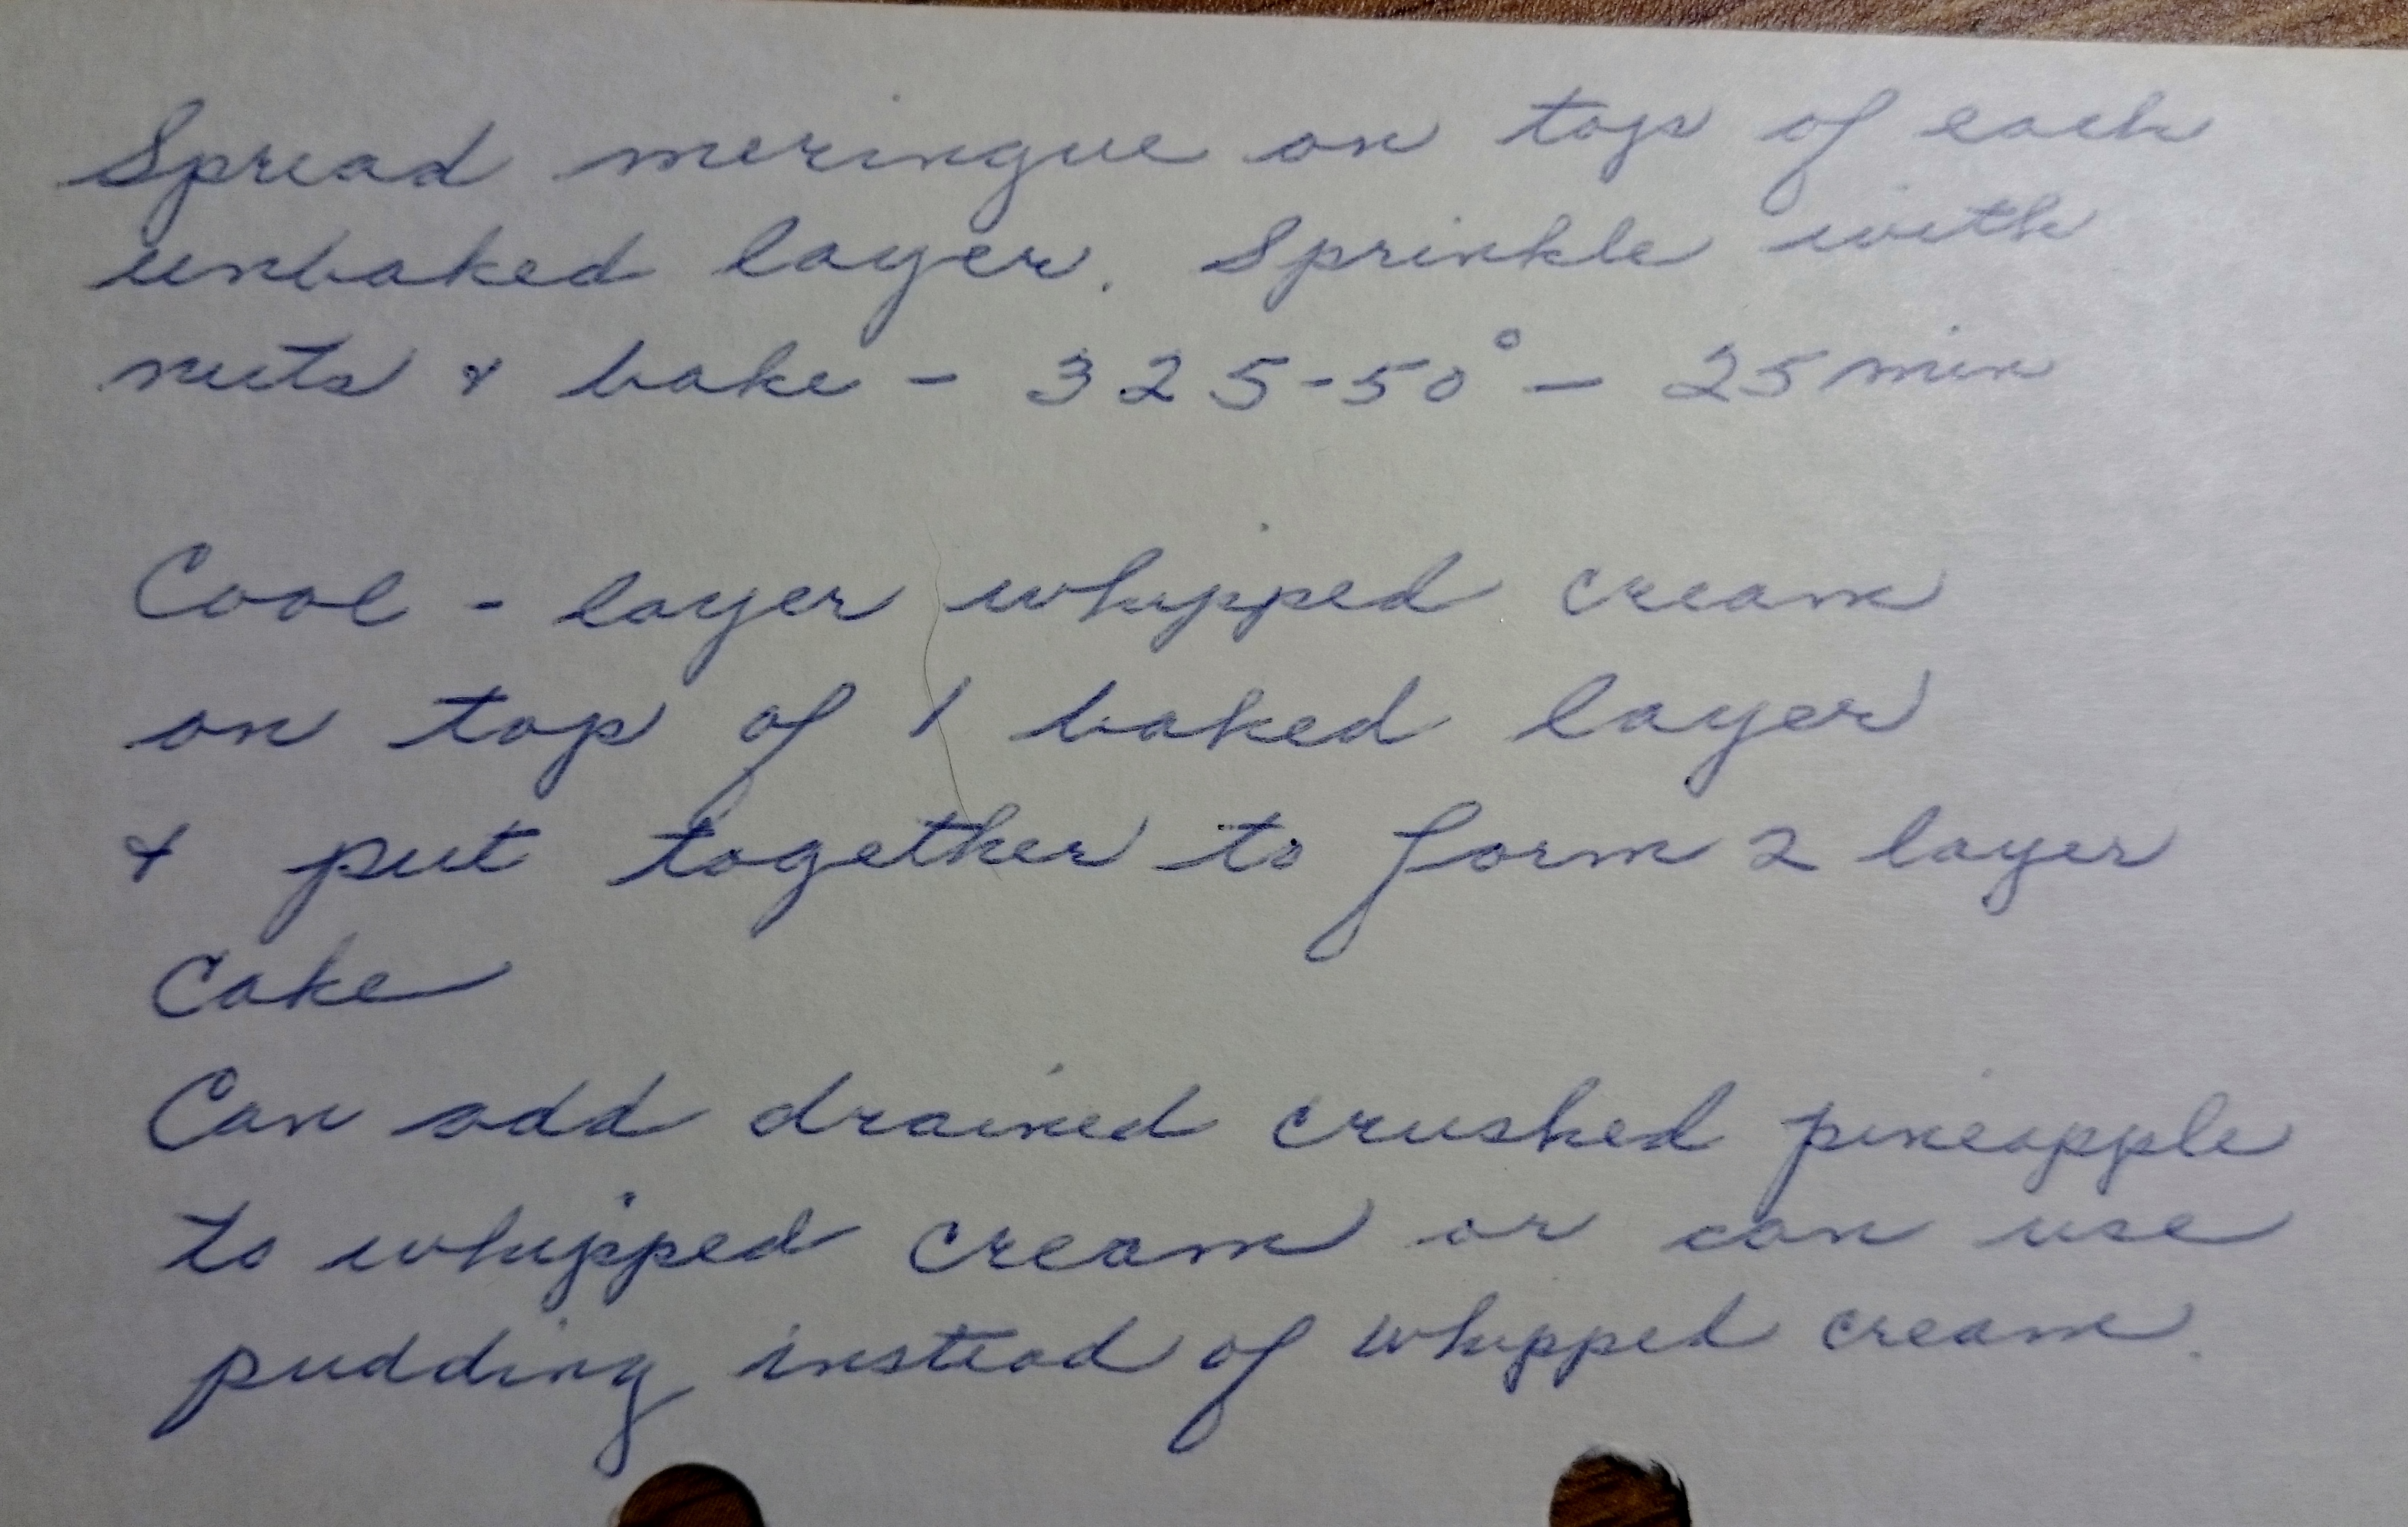 Spread meringue on top of each
unbaked layer. Sprinkle with
nuts & bake - 325-50° - 25 min
Cool - layer whipped cream
on top of 1 baked layer
& put together to form 2 layer
Cake
Can add drained crushed pineapple
to whipped cream or can use
pudding instead of whipped cream.